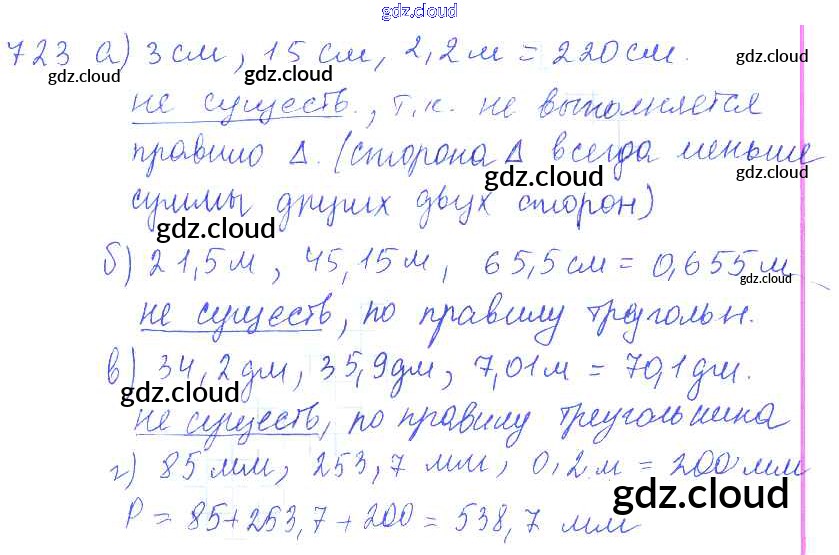 gdz.cloud
723 а) 3 см, 15 см, 2,2 м = 220 см.
gdz.cloud gdz.cloud gdz.cloud
не существ., т.к. не выполняется
gdz.cloud
правило Δ. (сторона Δ всегда меньше
gdz.cloud gdz.cloud
суммы других двух сторон)
gdz.cloud
б) 21,5 м, 45,15 м, 65,5 см = 0,655 м
gdz.cloud
не существ, по правилу треугольн.
gdz.cloud
в) 34,2 дм, 35,9 дм, 7,01 м = 70,1 дм.
gdz.cloud
не существ, по правилу треугольника
г) 85 мм, 253,7 мм, 0,2 м = 200 мм
gdz.cloud
P = 85 + 253,7 + 200 = 538,7 мм